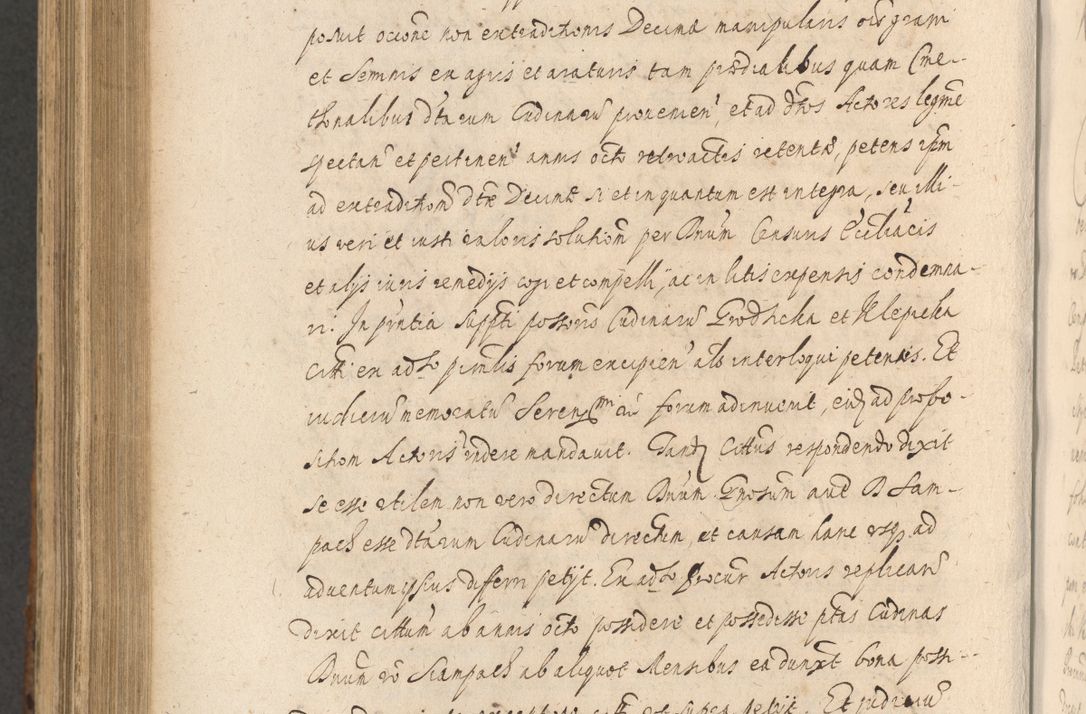 posuit oc̃cone non extraditionis Decimæ manipularis ois̃ grani
et seminis ex agris et araturis tam prædialibus quam Cme-
thonalibus dtarum Cudinarũ provenien̾, et ad dtos Actores legme
spectan̾ et pertinen̾ annis octo retroactis retentæ, petens ipm
ad extraditionẽ dtæ Decimæ si et in quantum est integra, seu illi-
us veri et iusti valoris solutionẽ per Dnum Censuris Ecclĩacis
et alijs iuris remedijs cogi et compelli, ac in litis expensis condemna-
ri. In prntia suppti possoris Cudinarũ Grodzicka et Klepicka
Citti ex adso pẽnlis forum excipien̾ als interloqui petentis. Et
iudiciũ memoratũ Serenssm cũ forum adinuenit, eidq ad propo-
sitiom Actoris rndere mandauit. Tandq Cittus respondendo dixit
se esse vtilem non vero directum Dnum Gnosum aute D Sam-
pach esse dtarum Cudinarũ directum, et causam hanc vsq ad
aduentum ipsius differri petijt. Ex adso procur Actoris replicanđ
dixit cittum ab annis octo possidere et possedisse ptas Cudinas
Dnum vo Stampach ab aliquot Mensibus ea dunxt bona possi-
petijt. Et judiciũ